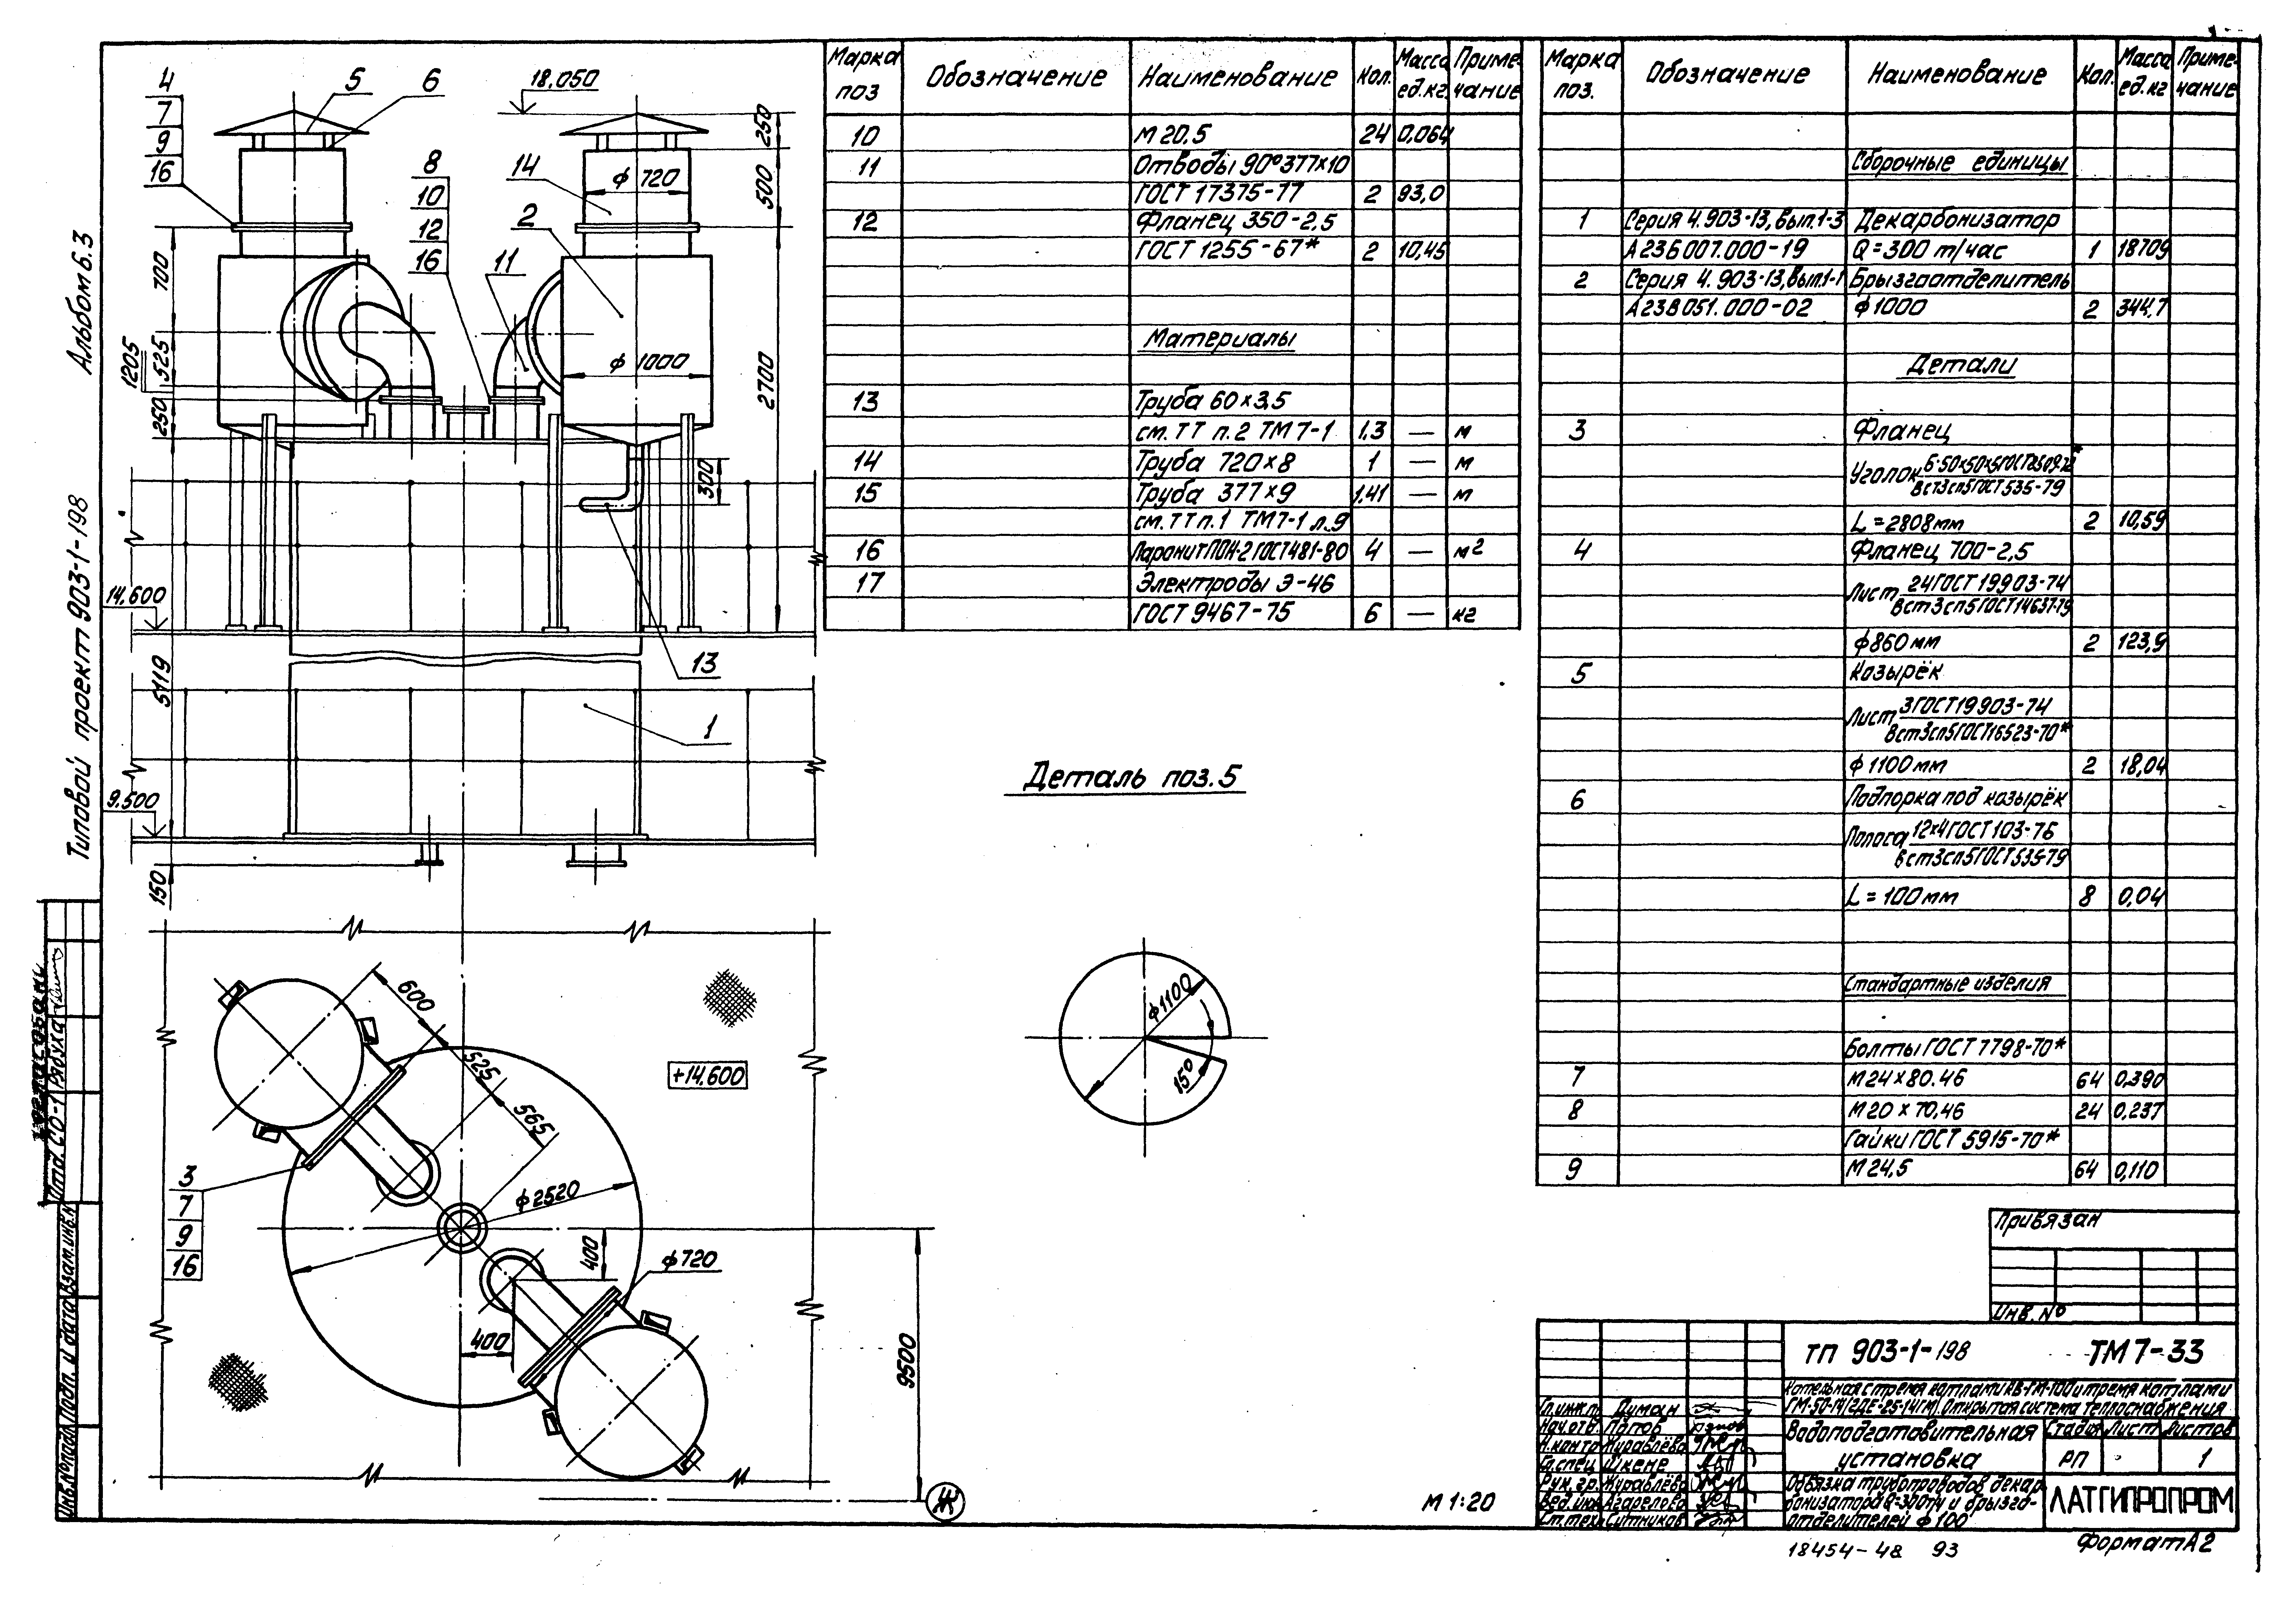 Альбом 6.3
Типовой проект 903-1-198
4
7
9
16
5
6
18,050
8
10
12
16
14
2
11
ф 720
ф 1000
250
500
2700
700
525
1205
250
300
14.600
5119
9.500
150
13
1
600
525
565
+14.600
ф 2520
ф 720
400
400
9500
3
7
9
16
Ж
Деталь поз.5
ф1100
15°
М 1:20
Марка поз Обозначение Наименование Кол. Масса ед.кг. Примечание
10 М 20.5 24 0,064
11 Отводы 90° 377×10
ГОСТ 17375-77 2 93,0
12 Фланец 350-2,5
ГОСТ 1255-67* 2 10,45
Материалы
13 Труба 60×3,5
см. ТТ п.2 ТМ 7-1 1,3 — м
14 Труба 720×8 1 — м
15 Труба 377×9 1,41 — м
см. ТТ п.1 ТМ7-1 л.9
16 Паронит ПОН-2 ГОСТ 481-80 4 — м2
17 Электроды Э-46
ГОСТ 9467-75 6 — кг
Марка поз. Обозначение Наименование Кол. Масса ед.кг Примечание
Сборочные единицы
1 Серия 4.903-13, вып.1-3 Декарбонизатор
А236007.000-19 Q=300 т/час 1 18709
2 Серия 4.903-13, вып.1-1 Брызгоотделитель
А238051.000-02 ф1000 2 344,7
Детали
3 Фланец
Уголок Б-50×50×5 ГОСТ 8509-72*
Вст3сп5 ГОСТ 535-79
L=2808мм 2 10,59
4 Фланец 700-2,5
Лист 24 ГОСТ 19903-74
Вст3сп5 ГОСТ 14637-79
ф860мм 2 123,9
5 Козырёк
Лист 3 ГОСТ 19903-74
Вст3сп5 ГОСТ 16523-70*
ф1100мм 2 18,04
6 Подпорка под козырёк
Полоса 12×4 ГОСТ 103-76
Вст3сп5 ГОСТ 535-79
L=100мм 8 0,04
Стандартные изделия
Болты ГОСТ 7798-70*
7 М24×80.46 64 0,390
8 М20×70,46 24 0,237
Гайки ГОСТ 5915-70*
9 М24,5 64 0,110
Привязан
Инв. №
ТП 903-1-198 ТМ 7-33
Котельная с тремя котлами КВ-ГМ-100 и тремя котлами
ГМ-50-14 (2ДЕ-25-14ГМ). Открытая система теплоснабжения
Гл.инж.п. Думан
Нач.отд. Попов
Н.контр Журавлёва
Гл.спец Шкене
Рук.гр. Журавлёва
Вед.инж Агарелова
Ст.тех. Ситников
Водоподготовительная
установка
Стадия Лист Листов
РП 1
Обвязка трубопроводов декар
бонизатора Q=300т/ч и брызго-
отделителей ф 100
ЛАТГИПРОПРОМ
Формат А2
18454-48 93
Согласовано
Отд. СО-1 Рябуха
Взам.инв.№
Подп. и дата
Инв.№ подл.